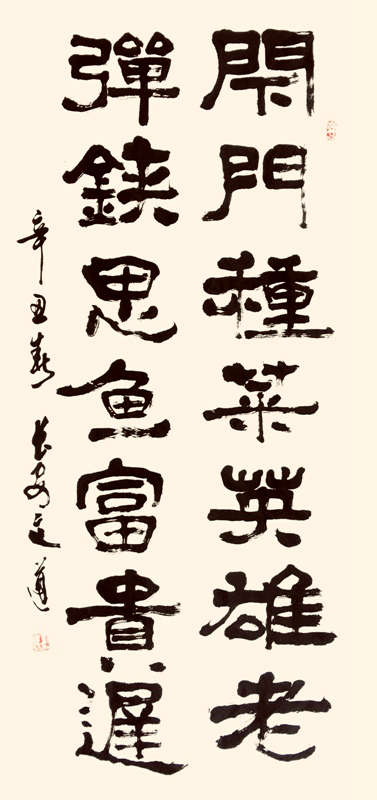 閇門種菜英雄老
彈鋏思魚富貴遲
辛丑春 長安